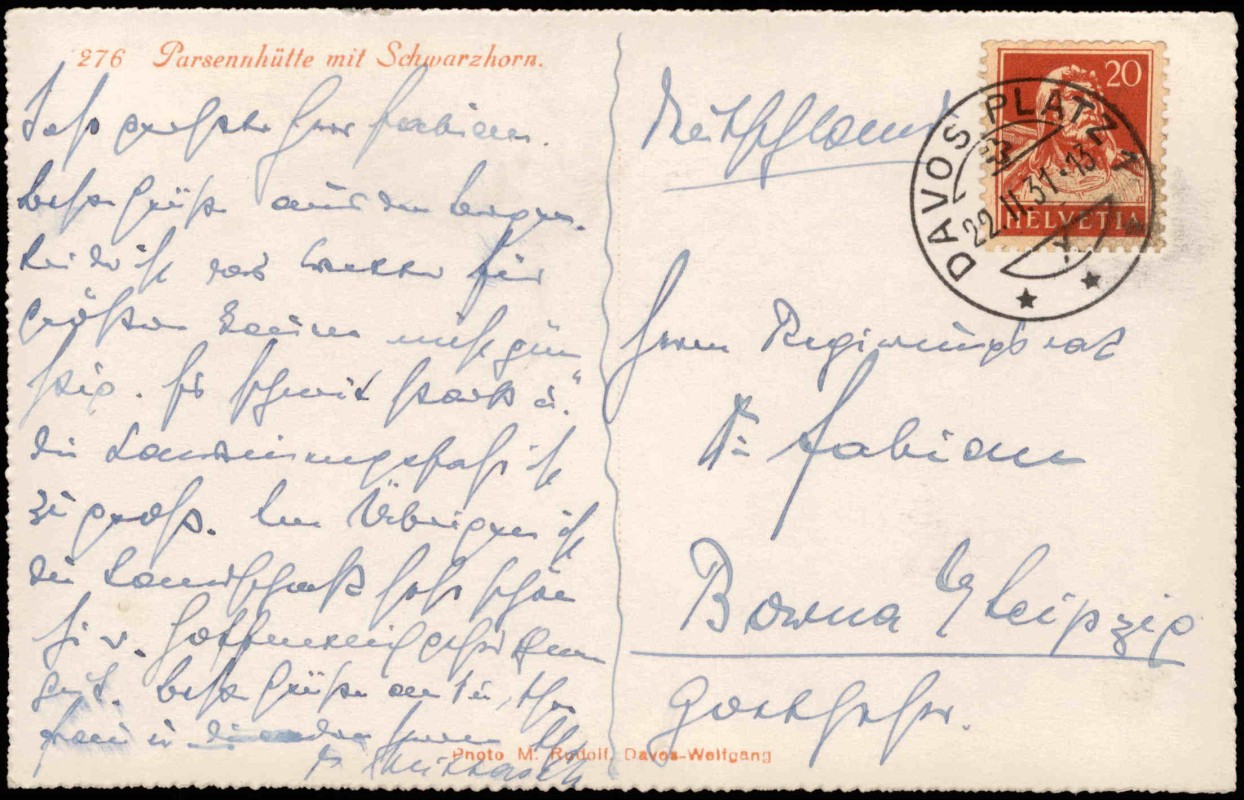 276 Parsennhütte mit Schwarzhorn.
Sehr geehrter Herr Fabian.
beste Grüße aus den Bergen.
Leider ist das Wetter für
größere Touren nicht gün
stig. Es schneit stark u.
die Lawinengefahr ist
zu groß. Im Übrigen ist
die Landschaft sehr schön
geht Ihnen
gut. beste Grüße an Sie, Ihre
Frau u. die anderen Herren
Photo M. Rudolf, Davos-Wolfgang
Deutschland
20
HELVETIA
DAVOS PLATZ 1
22.II.31.-13
Herrn Regierungsrat
Dr. Fabian
Borna b/Leipzig